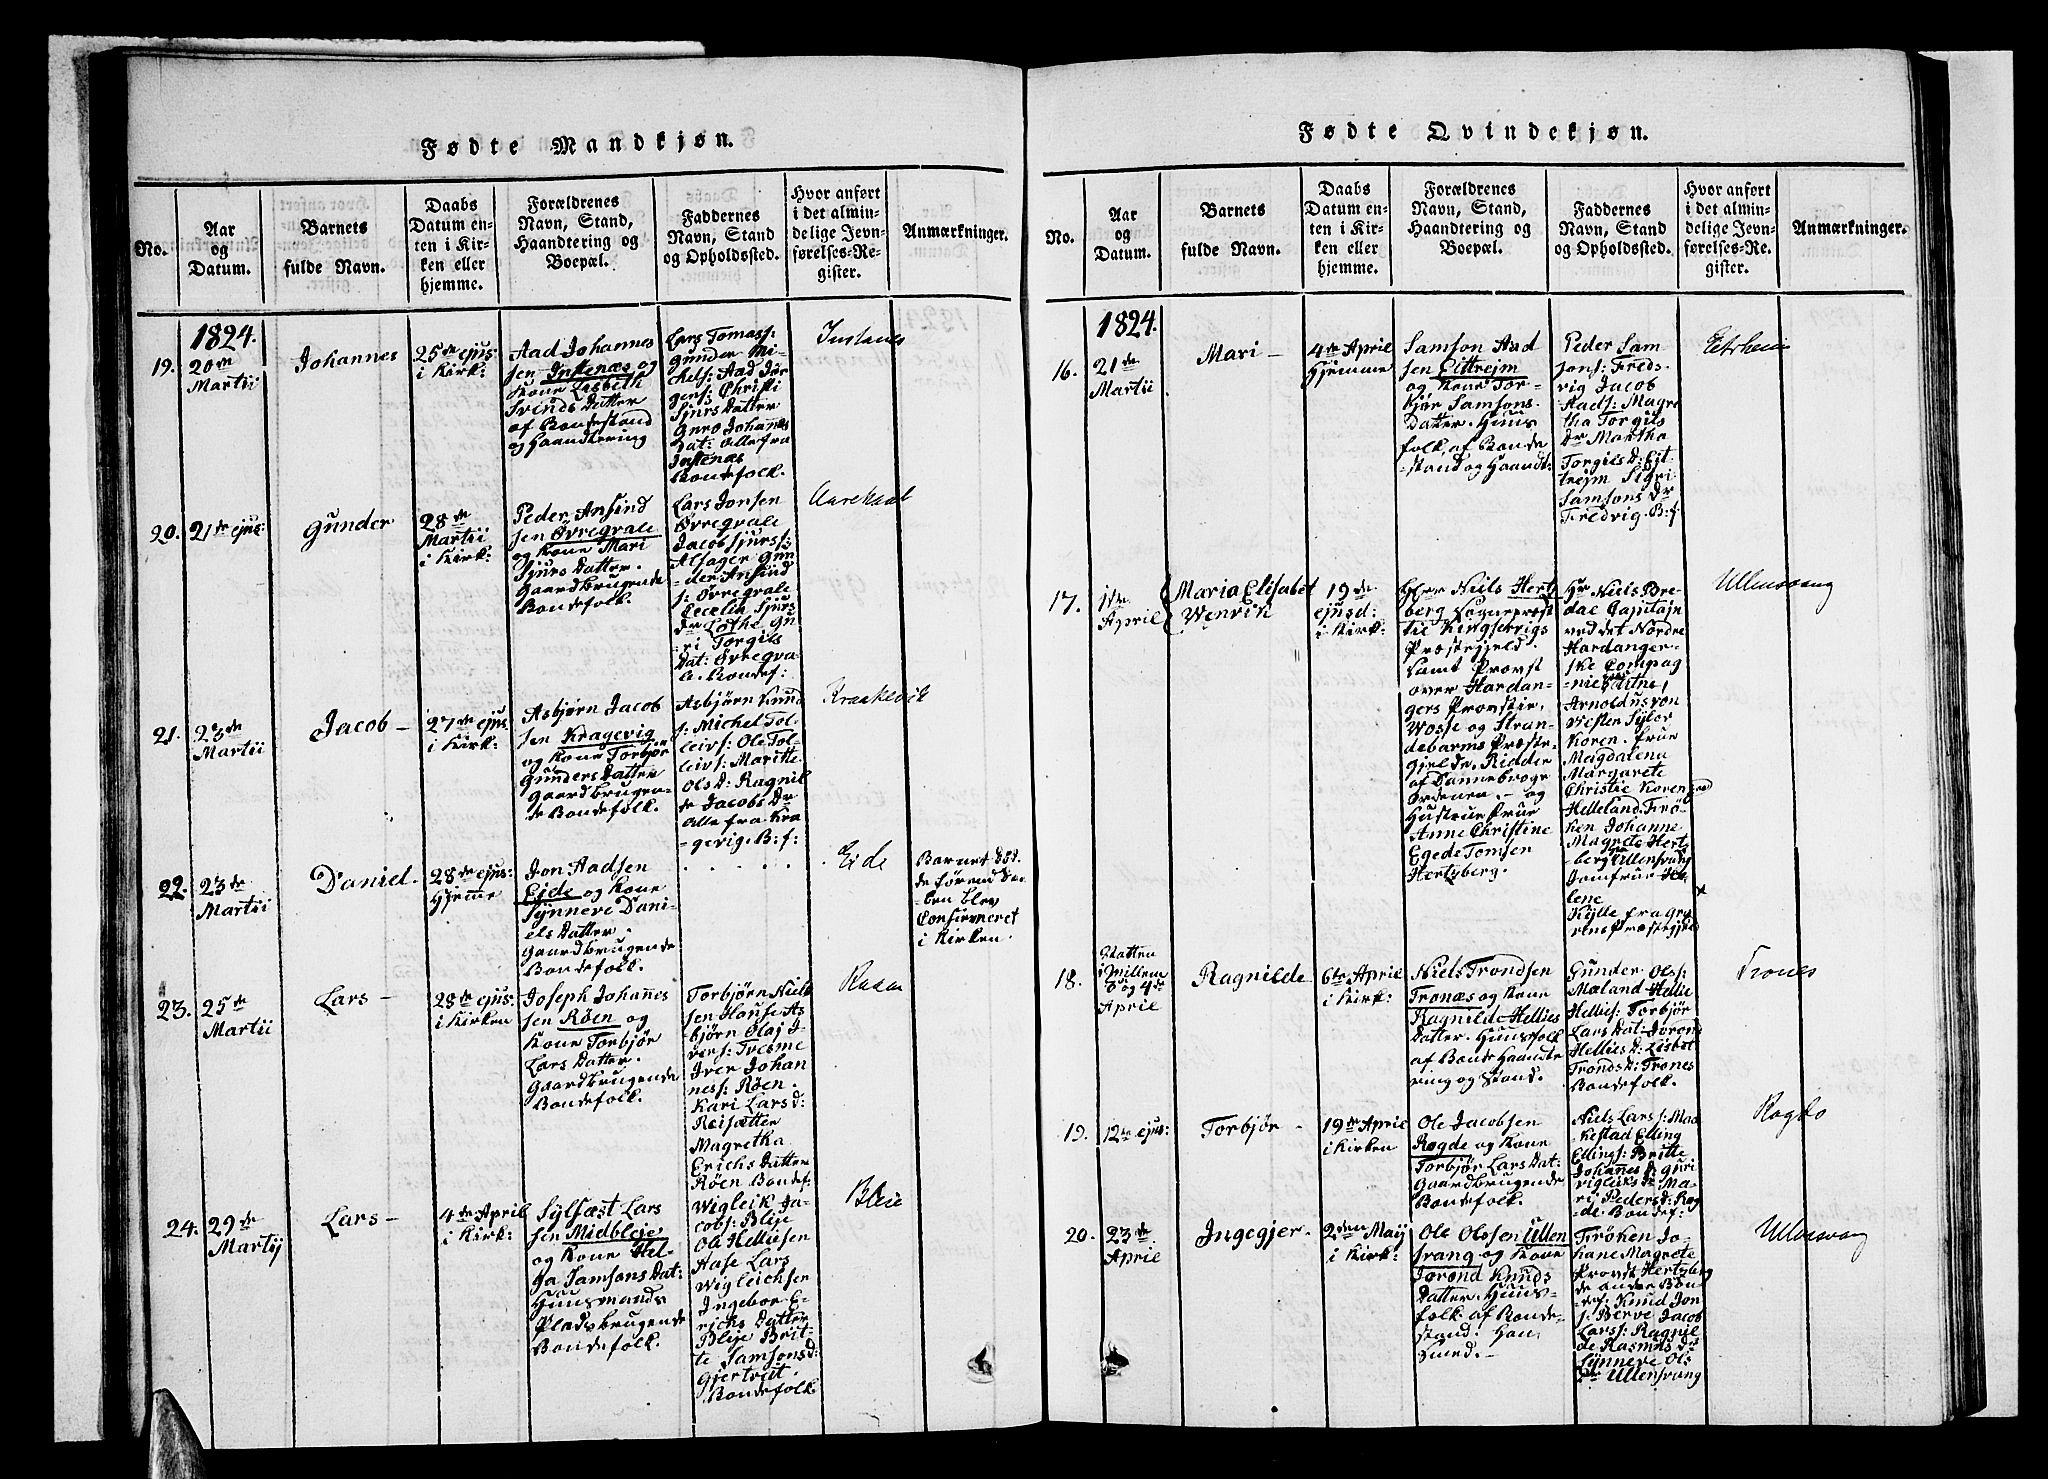 Fødte Mandkjøn.
No.
Aar
og
Datum.
Barnets
fulde Navn.
Daabs
Datum en-
ten i Kir-
ken eller
hjemme.
Forældrenes
Navn, Stand,
Haandtering og
Boepæl.
Faddernes
Navn, Stand
og Opholdssted.
Hvor anført
i det almin-
delige Jevn-
førelses-Re-
gister.
Anmærkninger.
1824.
19.
20de
Martii
Johannes
25de ejus:
i Kirk:
Aad Johannes
sen Instenæs og
Kone Lisbeth
Svinds Datter
af Bondestand
og Haandtering
Lars Tomass:
Gunder Mi-
chels: Aad Jør
gers: Christi
Sjurs Datter
Guro Johanes
Dat: Alle fra
Instenæs
Bondefolk.
20.
21de ejus:
Gunder
28de
Martii
i Kirk:
Peder Ansind
sen Øvregvale
og Kone Mari
Sjurs Datter.
Gaardbrugende
Bondefolk.
Lars Jonsen
Øvregvale
Jacob Sjurss:
Alsager Gun
der Ansind
s: Øvregvale
Cecelia Sjurs
Dr Lothe Gu
ri Torgils
Dat: Øvregva-
le. Bondef:
21.
23de
Martii
Jacob -
27de ejus
i Kirk:
Asbjørn Jacob
sen Kragevig
og Kone Torbjør
Gunders Datter
Gaardbrugen-
de Bondefolk.
Asbjørn Knud
s: Michel Tol-
leivs: Ole Tol-
leivs: Maritte
Ols D: Ragnil
de Jacobs Dr
Alle fra Kra
gevig. B: f:
Kraakevik
22.
23de
Martii
Daniel.
28de ejus:
Hjemme
Jon Aadsen
Eide og Kone
Synneve Dani-
els Datter.
Gaardbrugende
Bondefolk.
Eide
Barnet dø-
de førend Daa-
ben blev
Confirmeret
i Kirken.
23.
25de
Martii
Lars -
28de ejus:
i Kirken
Joseph Johannes
sen Røen og
Kone Torbjør
Lars Datter.
Gaardbrugende
Bondefolk.
Torbjørn Niels
sen House As
bjørn Olaj I-
vers: Tvesme
Iver Johan
ness: Røen.
Kari Lars d:
Reisætter
Magretha
Erichs Datter
Røen Bondef:
24.
29de
Martij
Lars -
4de April
i Kirk:
Sylfæst Lars
sen Midbleje
og Kone Hel-
ga Samsons Dat:
Huusmands
Pladsbrugende
Bondefolk.
Wigleik Ja-
cobs: Bleje
Ole Helliesen
Aase Lars
Wigleichsen
Ingebor E-
richs Datter
Bleje Brit-
te Samsons d:
Gjertveit.
Bondefolk
Bleie
Fødte Qvindekjøn.
No.
Aar
og
Datum.
Barnets
fulde Navn.
Daabs
Datum en-
ten i Kir-
ken eller
hjemme.
Forældrenes
Navn, Stand,
Haandtering og
Boepæl.
Faddernes
Navn, Stand
og Opholdssted.
Hvor anført
i det almin-
delige Jevn-
førelses-Re-
gister.
Anmærkninger.
1824.
16.
21de
Martii
Mari -
4de April
Hjemme
Samson Aad
sen Eittrejm
og Kone Tor-
kjør Samsons
Datter. Huus
folk, af Bonde
stand og Haandt:
Peder Sam
sons: Freds-
vig Jacob
Aads: Magre
tha Torgils
Dr Martha
Torgils D: Eit-
trejm Sigri
Samsons Dr
Fredvig. B: f.
Eitrheim
17.
1de
April
Maria Elisabet
Wenvik
19de
ejusd:
i Kirk:
Herr Niels Hertz
berg Sognepræst
til Kingservigs
Præstegjeld.
samt Provst
over Hardan-
gers Provstie,
Wosse og Stran-
debarms Præste-
gjelde, Ridder
af Dannebroge
Ordenen. - og
Hustrue Frue
Anne Christine
Egede Tomsen
Hertzberg.
Hr Niels Bre-
dal Capitajn
ved det Nordre
Hardanger-
ske Compag
nie
Arnoldus von
Westen Sylov
Koren. Frue
Magdalena
Margarete
Christie Koren
Helleland. Frø-
ken Johanne
Magrete Herts
berg Ullensvang
Jomfrue He-
lene
Kylle fra Gra
vens Præstegjeld
Ullensvang
18.
Natten
imillem
3de og 4de
April
Ragnilde
6te April
i Kirk:
Niels Trondsen
Tronæs og Kone
Ragnilde Hellies
Datter. Huusfolk
af Bonde Haandte
ring og Stand.
Gunder Olss:
Mæland Hellie
Hellies: Torbjør
Lars Dat: Jorond
Hellies D: Lisbet
Tronds D: Trones
Bondefolk.
Trones
19.
12te ejus:
Torbjør -
19de April
i Kirken
Ole Jacobsen
Rogde og Kone
Torbjør Lars Dat:
Gaardbrugende
Bondefolk.
Niels Lars s: Maa
kestad Elling
Ellings: Britte
Johanes d: Guri
Vigleiks d: Ma-
ri Peders d: Rog
de. Bondef:
20.
23de
April
Ingegjer.
2den Maij
i Kirk:
Ole Olssen Ullen
svang og Kone
Jorond Knuds
Datter. Huus-
folk af Bonde-
stand: Han
Smed. -
Frøken Jo-
hane Magrete
Provst Hertzberg
de andre Bøn
der Knud Jon
s: Berve Jacob
Larss: Ragnil
de Rasmus dr
Synneve Ols
Dr Ullensvang
Ullensvang